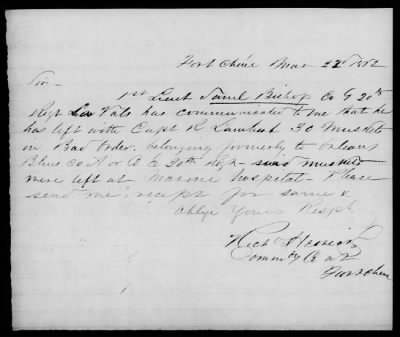 Fort Chene Mar 22d 1862
Sir -
1st Lieut Saml Bishop Co G 20th
Regt La Vols has communicated to me that he
has left with Capt 30 Muskets
in Bad Order. belonging formerly to Orleans
Blues co A or Co E 20th Regt - said muskets
were left at marine hospital - Please
send me recept for same &
Oblige Yours Respy
Rich
Commdg Co at
Fort Chene